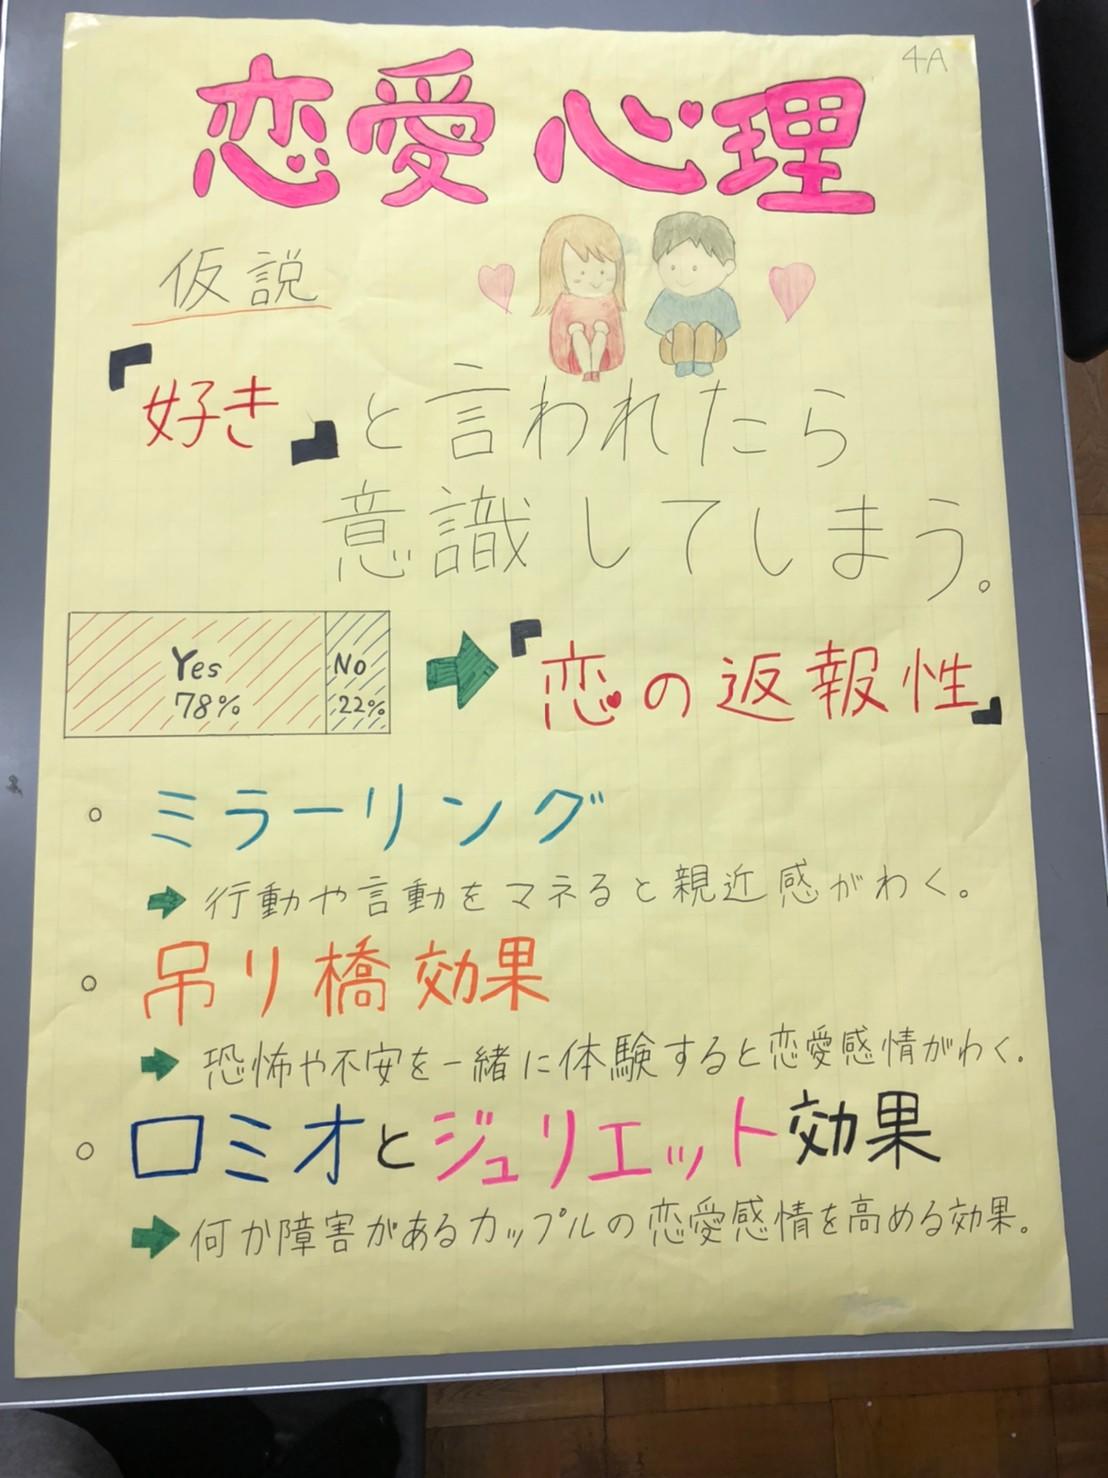 4A
恋愛心理
仮説
『好き』と言われたら
意識してしまう。
Yes
78%
No
22%
『恋の返報性』
ミラーリング
行動や言動をマネると親近感がわく。
吊り橋効果
恐怖や不安を一緒に体験すると恋愛感情がわく.
ロミオとジュリエット効果
何か障害があるカップルの恋愛感情を高める効果。